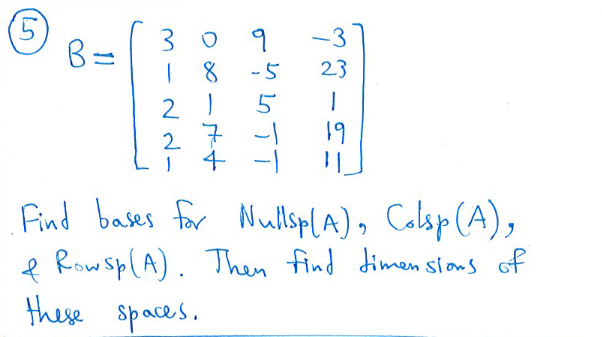 5
B =
3 0 9 -3
1 8 -5 23
2 1 5 1
2 7 -1 19
1 4 -1 11
Find bases for Nullsp(A), Colsp(A),
& Rowsp(A). Then find dimensions of
these spaces.